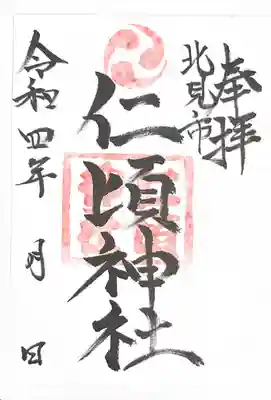 奉拝
北見市
仁頃神社
令和四年 月 日